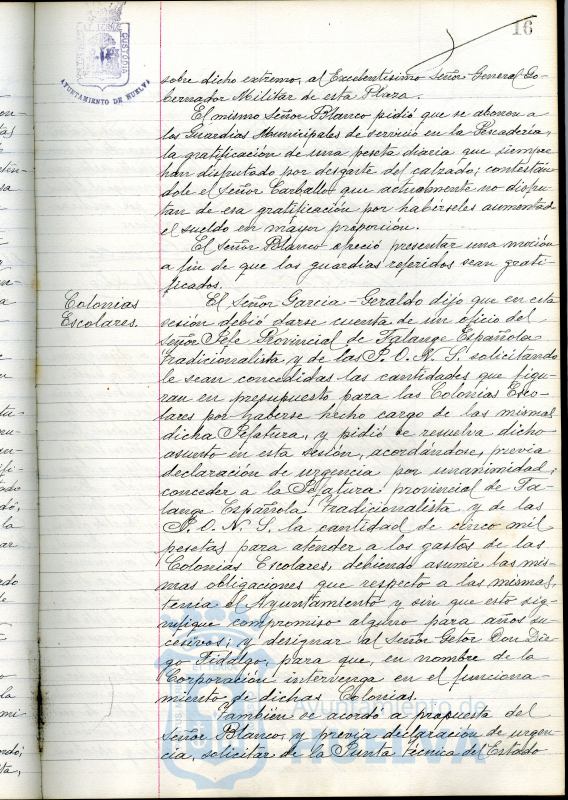 16
AYUNTAMIENTO DE HUELVA
sobre dicho extremo, al Excelentísimo Señor General Go-
bernador Militar de esta Plaza.
El mismo Señor Blanco pidió que se abonen a
los Guardias Municipales de servicio en la Pescadería,
la gratificación de una peseta diaria que siempre
han disfrutado por desgaste del calzado; contestán-
dole el Señor Carballo que actualmente no disfru-
tan de esa gratificación por habérseles aumentado
el sueldo en mayor proporción.
El Señor Blanco ofreció presentar una moción
a fin de que los guardias referidos sean grati-
ficados.
Colonias
Escolares.
El Señor García-Geraldo dijo que en esta
sesión debió darse cuenta de un oficio del
Señor Jefe Provincial de Falange Española
Tradicionalista y de las J. O. N. S. solicitando
le sean concedidas las cantidades que figu-
ran en presupuesto para las Colonias Esco-
lares por haberse hecho cargo de las mismas
dicha Jefatura, y pidió se resuelva dicho
asunto en esta sesión, acordándose, previa
declaración de urgencia por unanimidad,
conceder a la Jefatura provincial de Fa-
lange Española Tradicionalista y de las
J. O. N. S. la cantidad de cinco mil
pesetas para atender a los gastos de las
Colonias Escolares, debiendo asumir las mis-
mas obligaciones que respecto a las mismas
tenía el Ayuntamiento y sin que esto sig-
nifique compromiso alguno para años su-
cesivos; y designar al Señor Gestor Don Die-
go Fidalgo, para que, en nombre de la
Corporación intervenga en el funciona-
miento de dichas Colonias.
También se acordó a propuesta del
Señor Blanco, y previa declaración de urgen-
cia, solicitar de la Junta Técnica del Estado
Ayuntamiento de
HUELVA